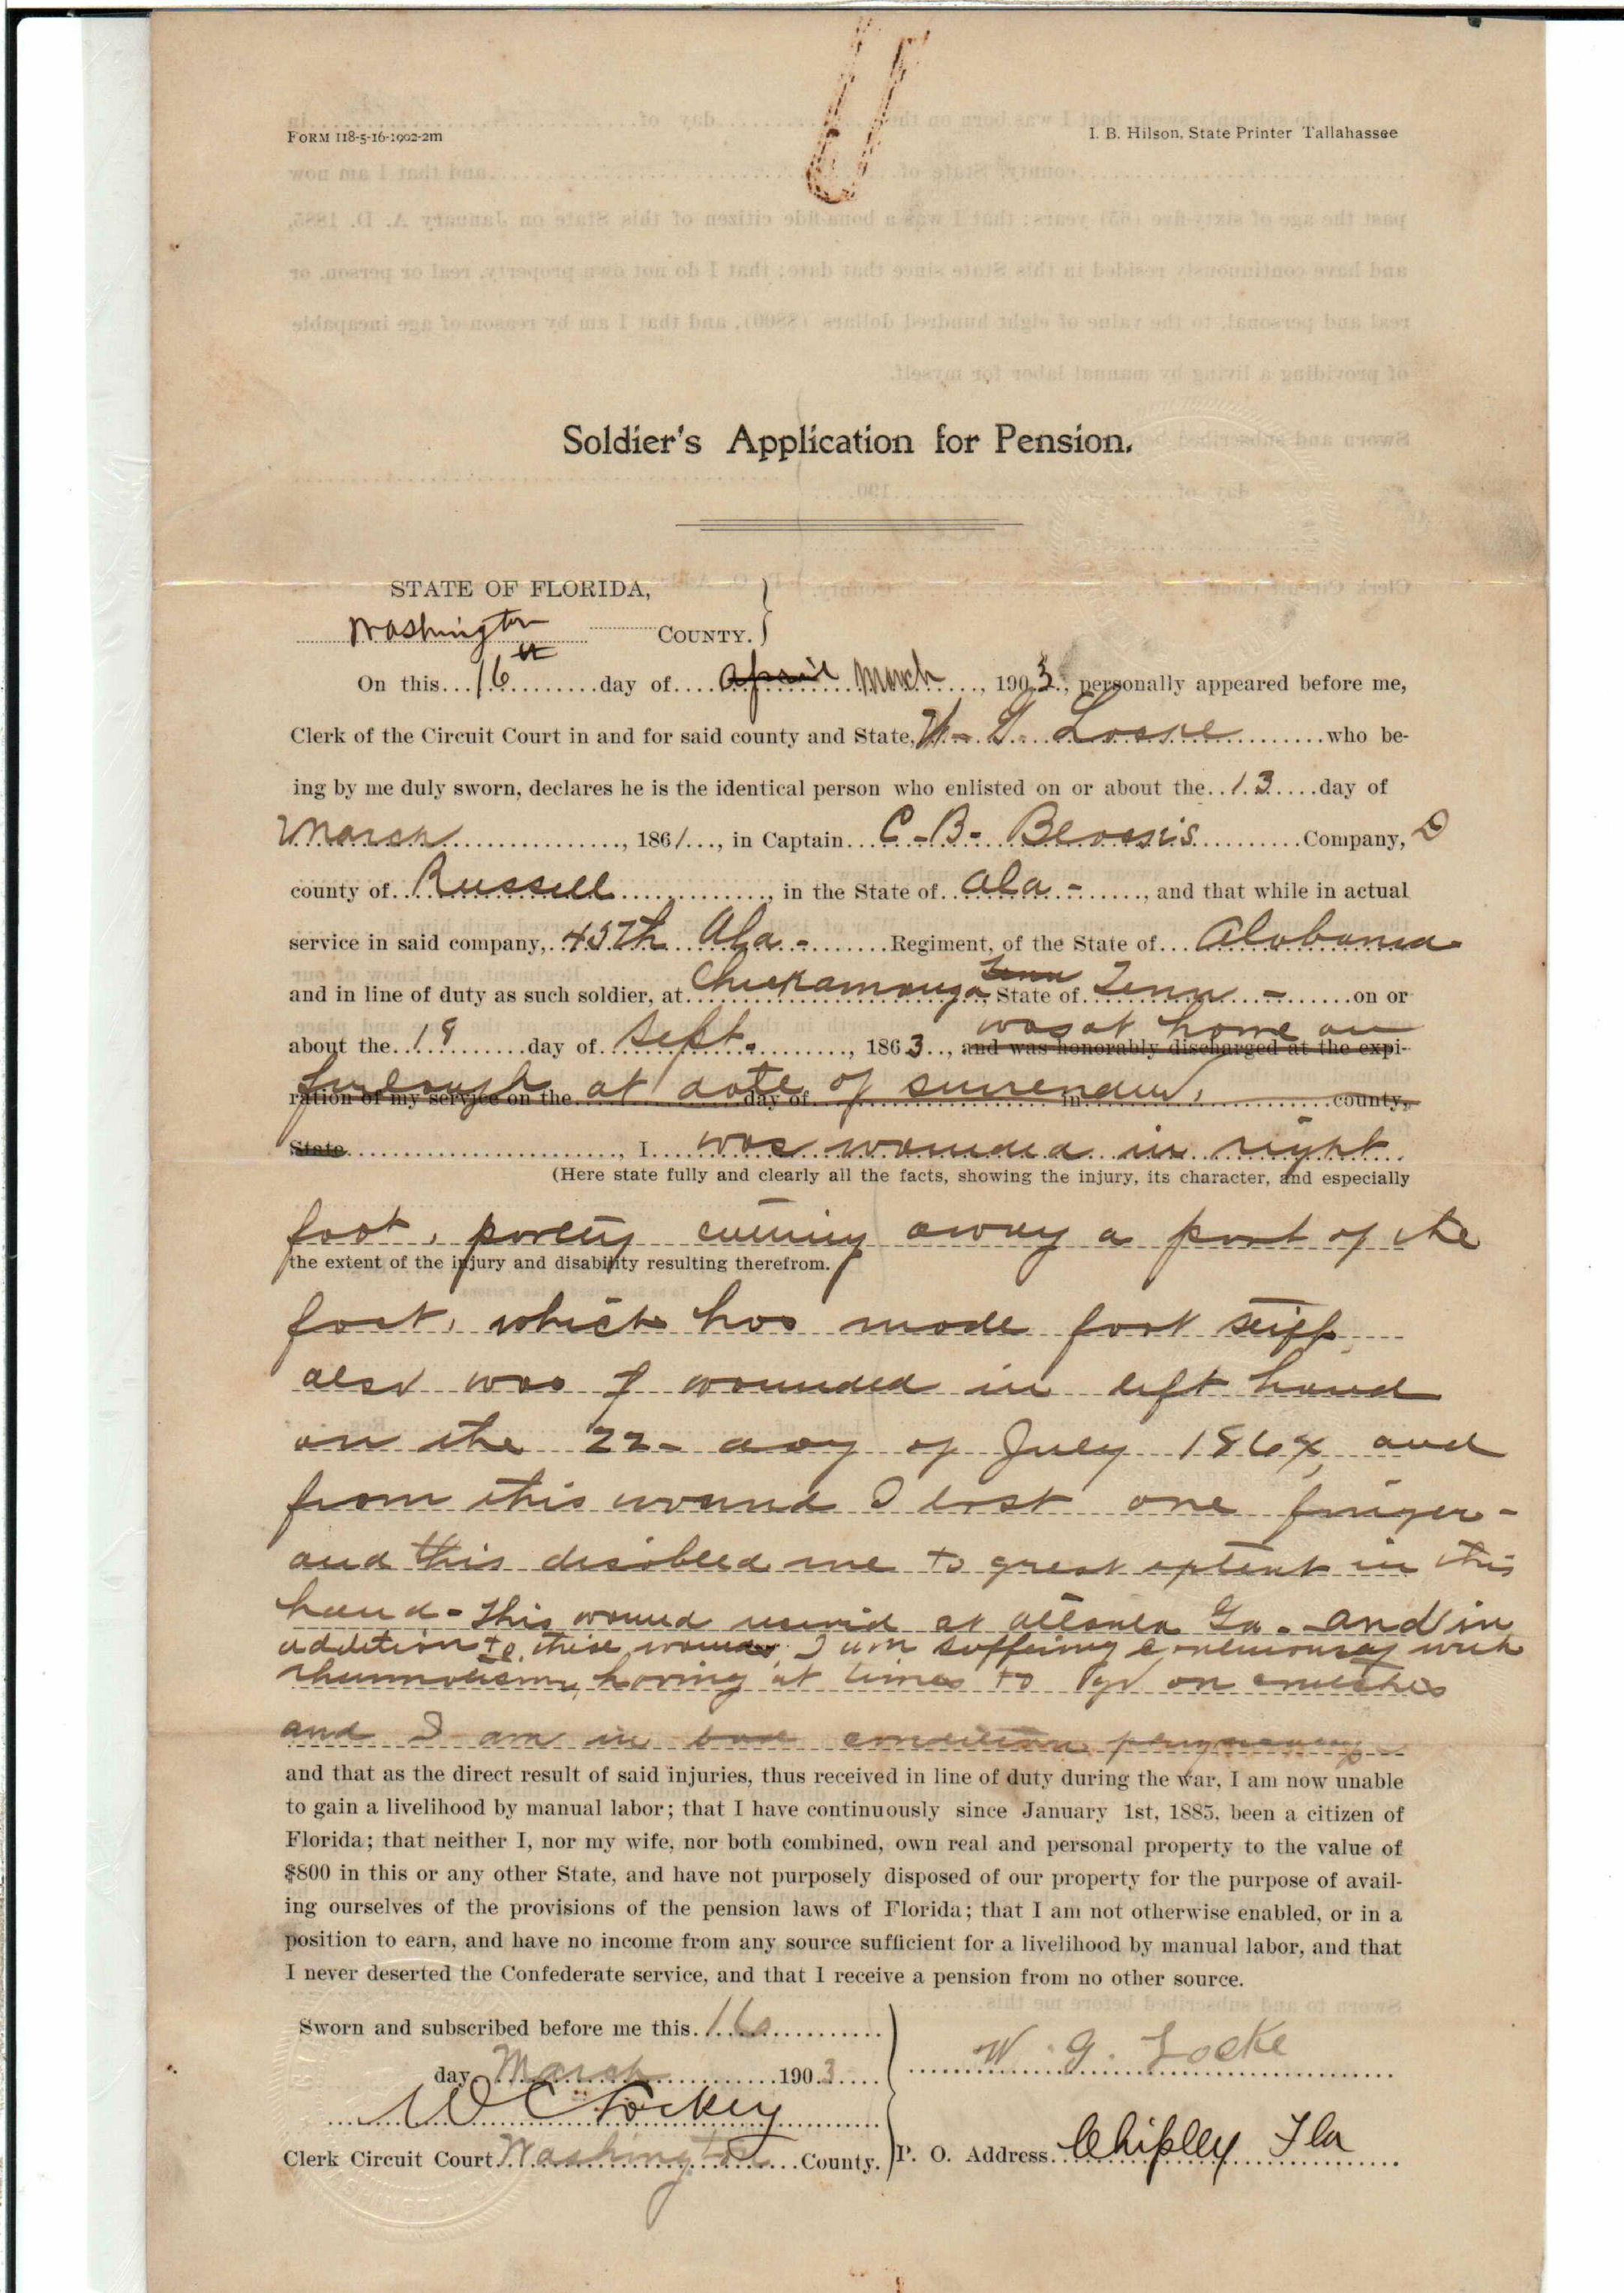 FORM 118-5-16-1902-2m
I. B. Hilson, State Printer Tallahassee
Soldier's Application for Pension.
STATE OF FLORIDA,
Washington COUNTY.
On this 16th day of April March, 1903, personally appeared before me,
Clerk of the Circuit Court in and for said county and State, W. G. Locke who be-
ing by me duly sworn, declares he is the identical person who enlisted on or about the 13 day of
March, 1861, in Captain C-B- Company, D
county of Russell, in the State of Ala-, and that while in actual
service in said company, 45th Ala- Regiment, of the State of Alabama
Tenn
and in line of duty as such soldier, at Chickamauga, State of Tenn- on or
was at home on
about the 19 day of Sept., 1863, and was honorably discharged at the expi-
furlough at date of surrender,
ration of my service on the day of in county,
State, I was wounded in right
(Here state fully and clearly all the facts, showing the injury, its character, and especially
foot, partly cutting away a part of the
the extent of the injury and disability resulting therefrom.
foot, which has made foot stiff,
also was I wounded in left hand
on the 22- day of July 1864, and
from this wound I lost one finger-
and this disabled me to great extent in this
hand- This wound receivd at Atlanta Ga. and in
addition to these wounds, I am suffering continuously with
rheumatism, having at times to go on crutches
and I am in bad condition physically
and that as the direct result of said injuries, thus received in line of duty during the war, I am now unable
to gain a livelihood by manual labor; that I have continuously since January 1st, 1885, been a citizen of
Florida; that neither I, nor my wife, nor both combined, own real and personal property to the value of
$800 in this or any other State, and have not purposely disposed of our property for the purpose of avail-
ing ourselves of the provisions of the pension laws of Florida; that I am not otherwise enabled, or in a
position to earn, and have no income from any source sufficient for a livelihood by manual labor, and that
I never deserted the Confederate service, and that I receive a pension from no other source.
Sworn and subscribed before me this 16
day March 1903
W. G. Locke
W C Lockey
Clerk Circuit Court Washington County.
P. O. Address Chipley Fla